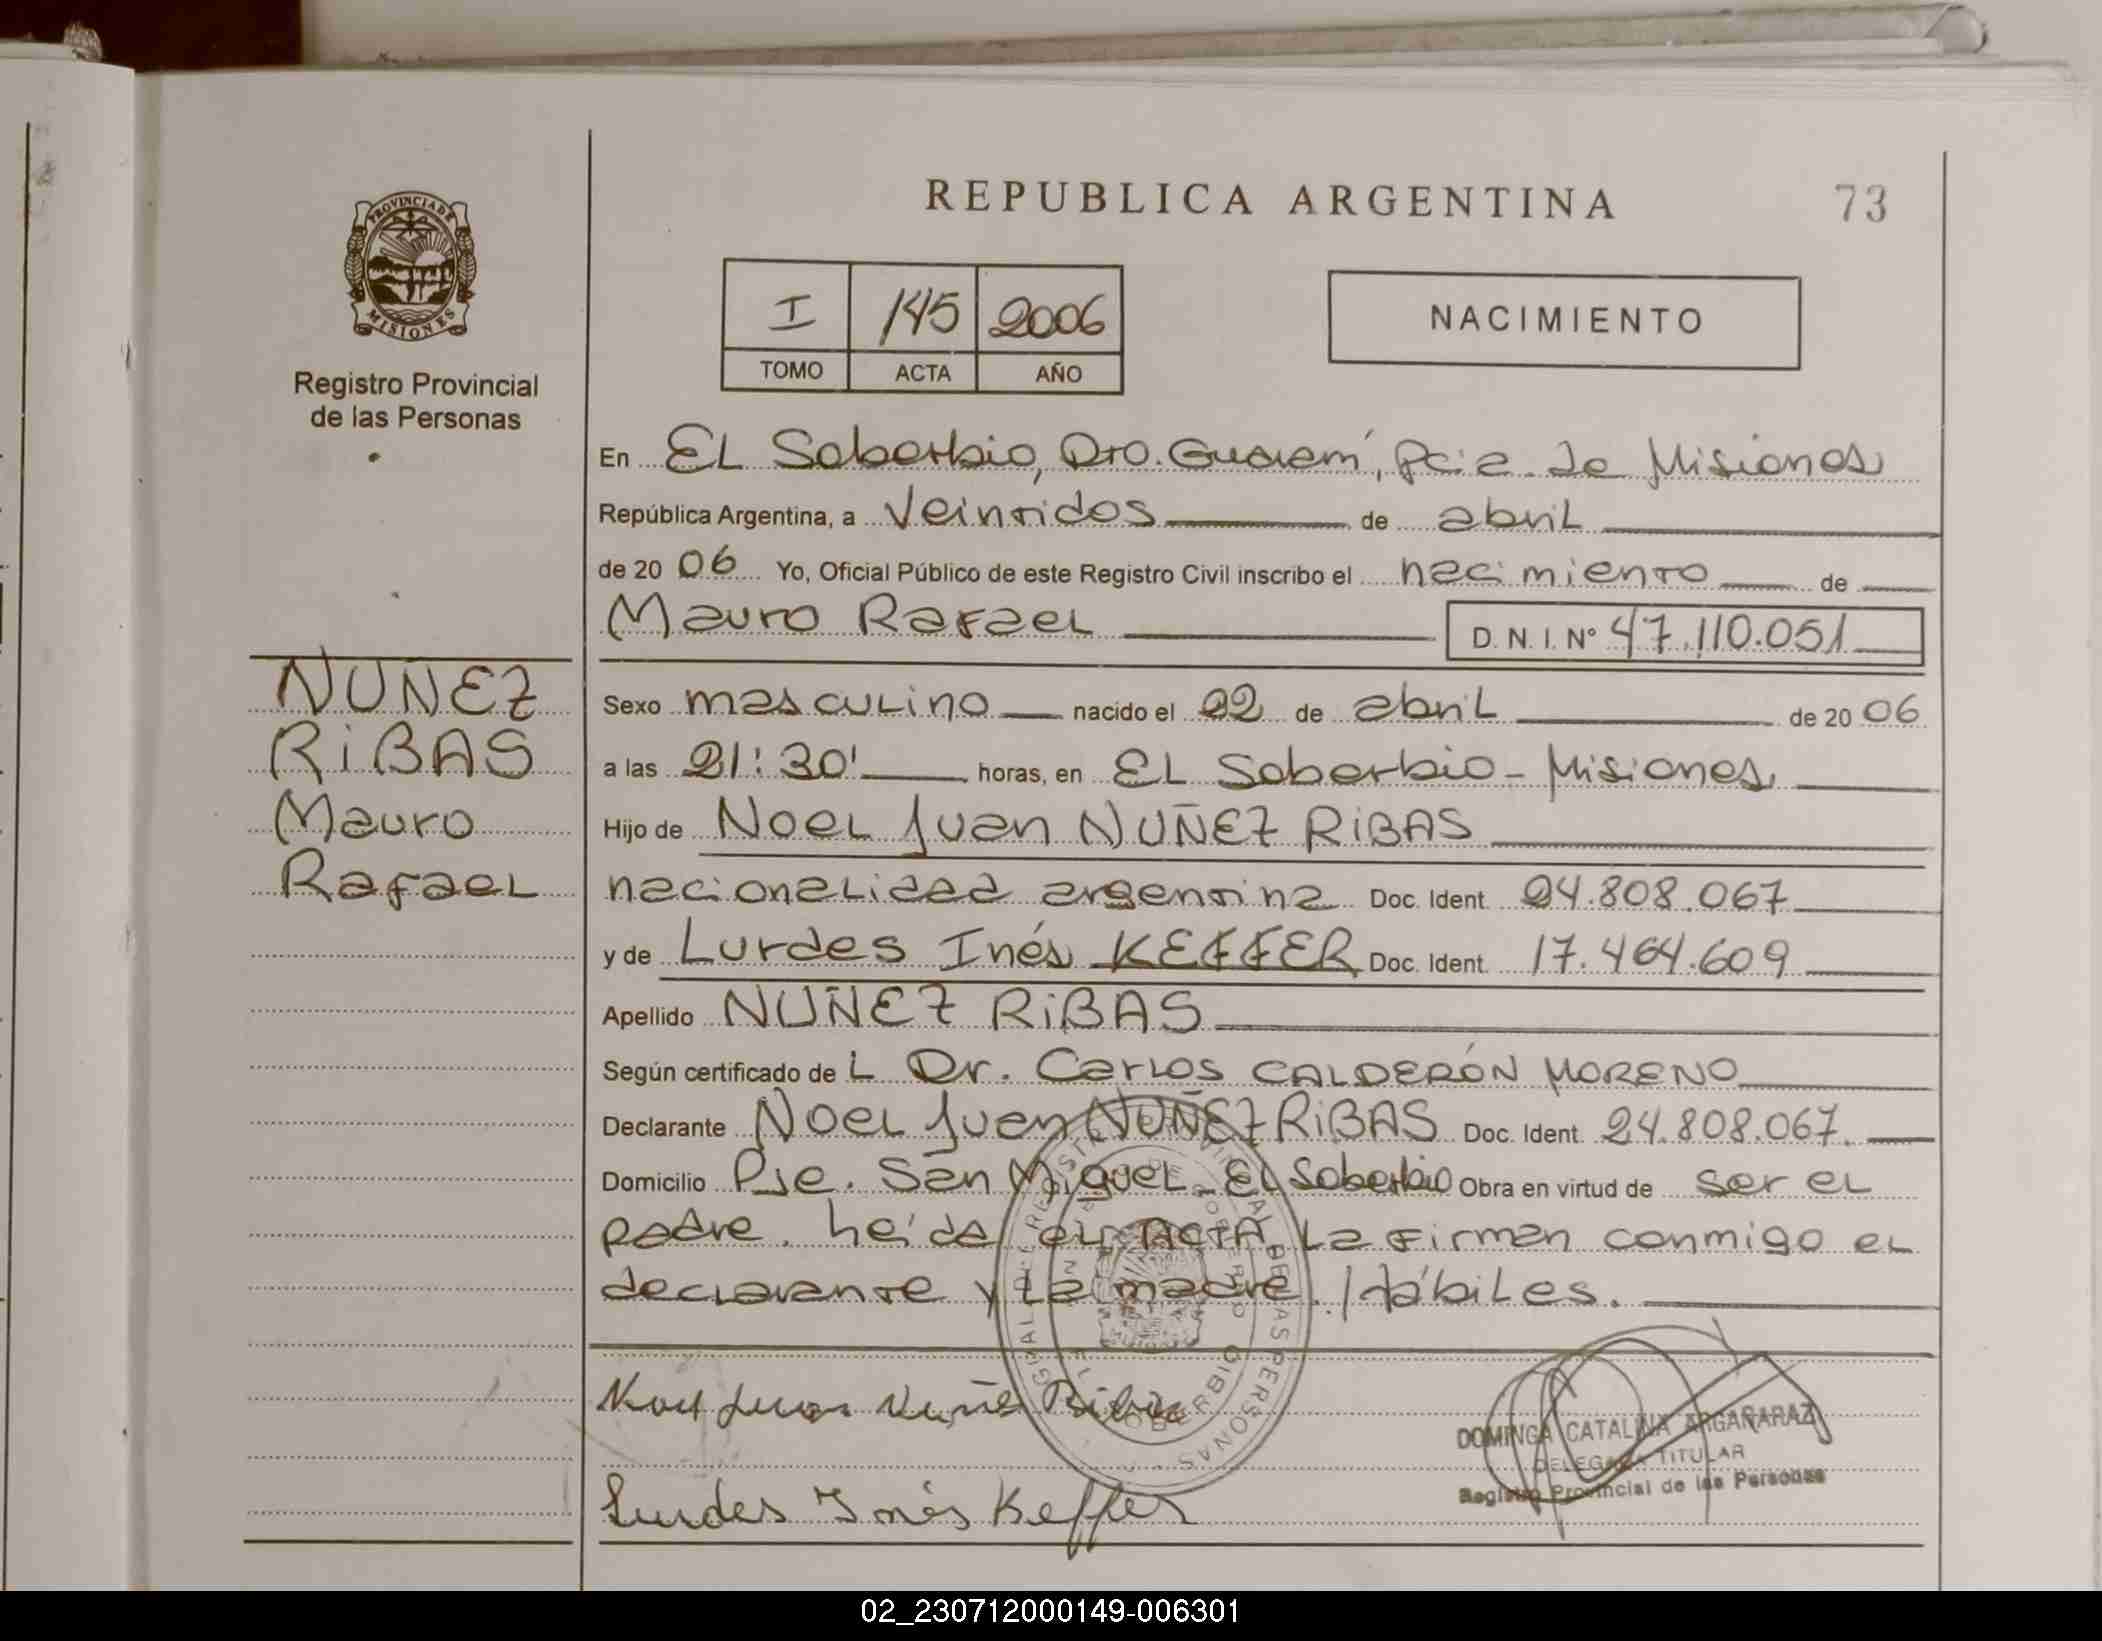 PROVINCIA DE
MISIONES
Registro Provincial
de las Personas
REPUBLICA ARGENTINA
73
I 145 2006
TOMO ACTA AÑO
NACIMIENTO
En EL Soberbio, Dto. Guaraní, Pcia. de Misiones
República Argentina, a Veintidos de abril
de 20 06 Yo, Oficial Público de este Registro Civil inscribo el nacimiento de
Mauro Rafael D. N. I. Nº 47.110.051
NUÑEZ
RiBAS
Mauro
Rafael
Sexo masculino nacido el 22 de abril de 20 06
a las 21:30' horas, en EL Soberbio - Misiones,
Hijo de Noel Juan NUÑEZ RiBAS
nacionalidad argentina Doc. Ident. 24.808.067
y de Lurdes Inés KEFFER Doc. Ident. 17.464.609
Apellido NUÑEZ RiBAS
Según certificado de L Dr. Carlos CALDERÓN MORENO
Declarante Noel Juan NUÑEZ RiBAS Doc. Ident. 24.808.067.
Domicilio Pje. San Miguel - El Soberbio Obra en virtud de ser el
padre. Leída el ACTA, La firman conmigo el
declarante y la madre. Hábiles.
Noel Juan Nuñez Ribas
Lurdes Inés Keffer
DOMINGA CATALINA ARGAÑARAZ
DELEGADA TITULAR
Registro Provincial de las Personas
02_230712000149-006301